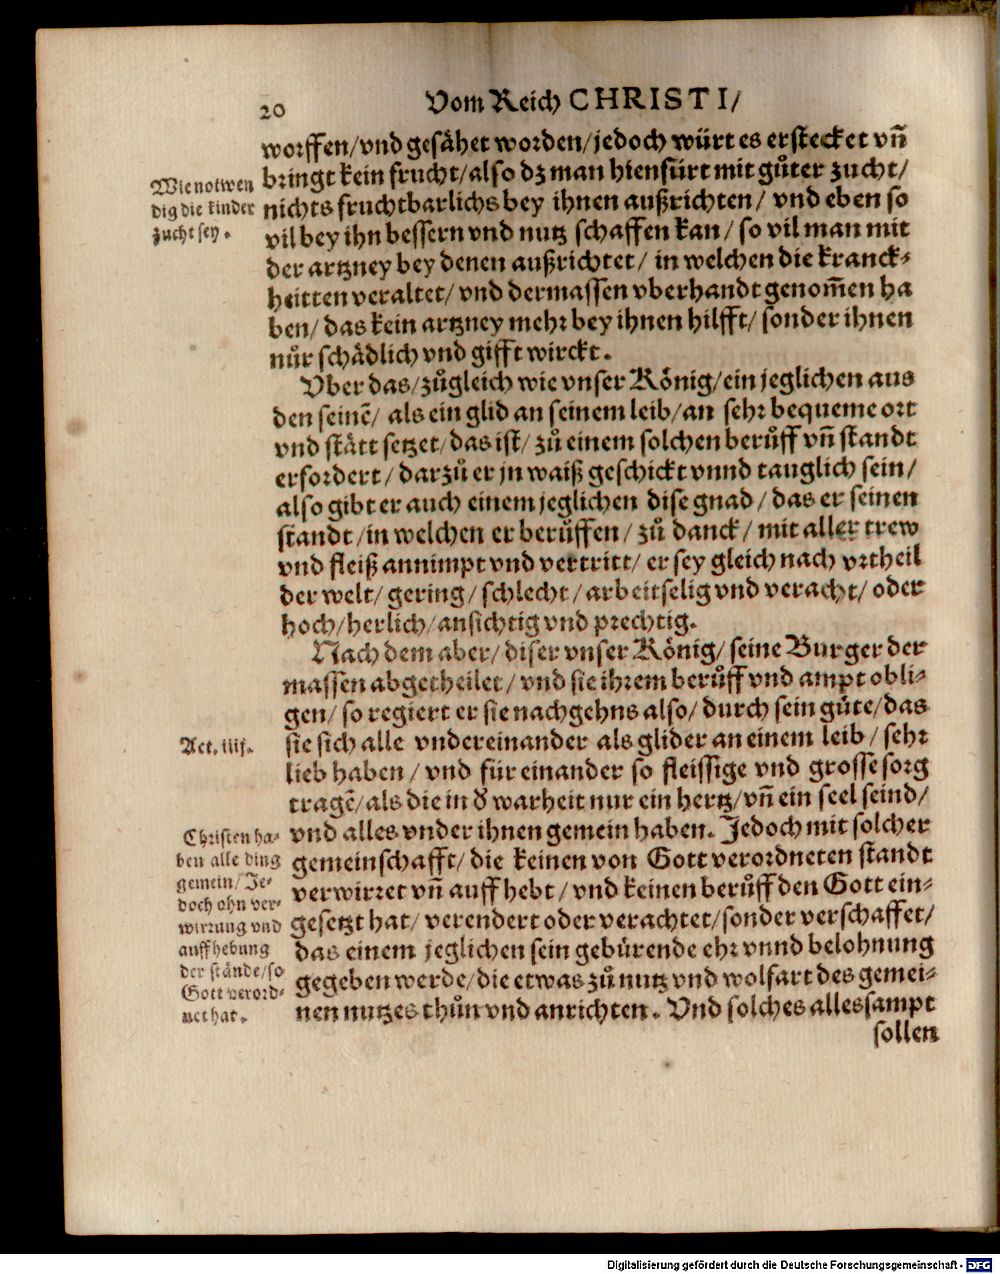 20
Vom Reich CHRISTI/
worffen/vnd gesähet worden/jedoch würt es erstecket vñ
bringt kein frucht/also dz man hienfürt mit gůter zucht/
nichts fruchtbarlichs bey ihnen außrichten/ vnd eben so
vil bey ihn bessern vnd nutz schaffen kan/ so vil man mit
der artzney bey denen außrichtet/ in welchen die kranck-
heitten veraltet/ vnd dermassen vberhandt genom̃en ha
ben/ das kein artzney mehr bey ihnen hilfft/ sonder ihnen
nůr schädlich vnd gifft wirckt.
Vber das/zůgleich wie vnser König/ein jeglichen aus
den seinē/ als ein glid an seinem leib/an sehr bequeme ort
vnd stätt setzet/das ist/ zů einem solchen berůff vñ standt
erfordert/ darzů er jn waiß geschickt vnnd tauglich sein/
also gibt er auch einem jeglichen dise gnad/ das er seinen
standt/in welchen er berůffen/ zů danck/ mit aller trew
vnd fleiß annimpt vnd vertritt/ er sey gleich nach vrtheil
der welt/ gering/ schlecht/ arbeitselig vnd veracht/ oder
hoch/herlich/ansichtig vnd prechtig.
Nach dem aber/ diser vnser König/ seine Burger der
massen abgetheilet/ vnd sie ihrem berůff vnd ampt obli-
gen/ so regiert er sie nachgehns also/ durch sein güte/das
sie sich alle vndereinander als glider an einem leib/ sehr
lieb haben/ vnd für einander so fleissige vnd grosse sorg
tragē/als die in d warheit nur ein hertz/vñ ein seel seind/
vnd alles vnder ihnen gemein haben. Jedoch mit solcher
gemeinschafft/ die keinen von Gott verordneten standt
verwirret vñ auff hebt/ vnd keinen berůff den Gott ein-
gesetzt hat/ verendert oder verachtet/sonder verschaffet/
das einem jeglichen sein gebürende ehr vnnd belohnung
gegeben werde/die etwas zů nutz vnd wolfart des gemei-
nen nutzes thůn vnd anrichten. Vnd solches alles sampt
sollen
Wie notwen
dig die kinder
zucht sey.
Act. iiij.
Christen ha-
ben alle ding
gemein/ Je-
doch ohn ver-
wirrung vnd
auffhebung
der stände/so
Gott verord-
net hat.
Digitalisierung gefördert durch die Deutsche Forschungsgemeinschaft - DFG